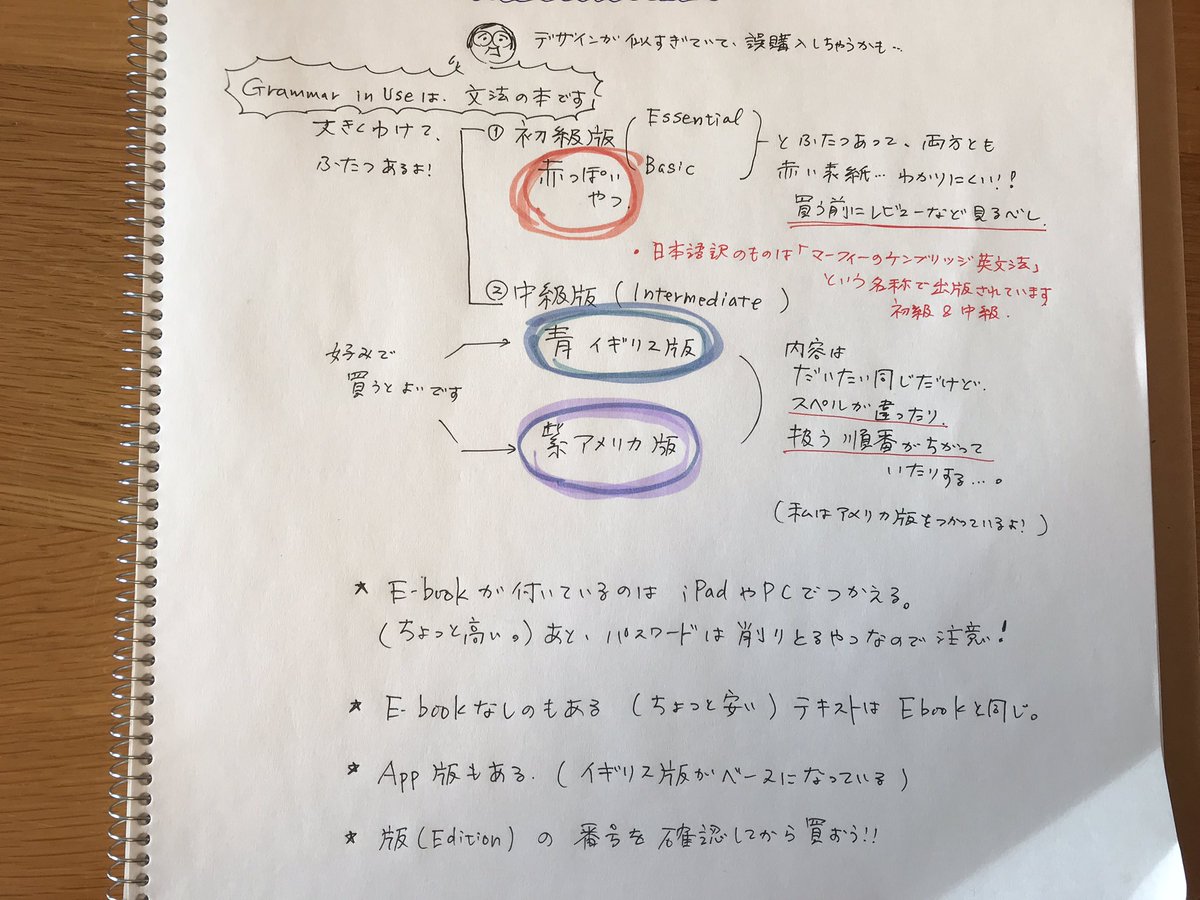 デザインが似すぎていて、誤購入しちゃうかも…
Grammar in Useは、文法の本です!
大きくわけて、
ふたつあるよ!
① 初級版
Essential
Basic
赤っぽい
やつ
とふたつあって、両方とも
赤い表紙…わかりにくい!!
買う前にレビューなど見るべし.
・日本語訳のものは「マーフィーのケンブリッジ英文法」
という名称で出版されています
初級&中級.
② 中級版 (Intermediate)
好みで
買うとよいです
青 イギリス版
紫 アメリカ版
内容は
だいたい同じだけど.
スペルが違ったり.
扱う順番がちがって
いたりする…。
(私はアメリカ版をつかっているよ!)
★ E-bookが付いているのは iPadやPCでつかえる。
(ちょっと高い。) あと、パスワードは削りとるやつなので注意!
★ E-bookなしのもある (ちょっと安い) テキストは Ebookと同じ。
★ App版もある. (イギリス版がベースになっている)
★ 版(Edition)の番号を確認してから買おう!!